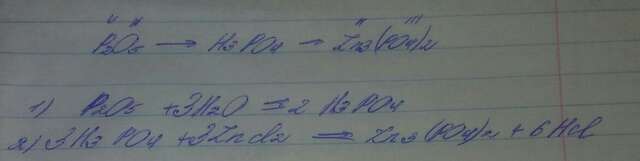 P2O5 → H3PO4 → Zn3(PO4)2
1) P2O5 + 3H2O = 2 H3PO4
2) 3H3PO4 + 3ZnCl2 = Zn3(PO4)2 + 6HCl